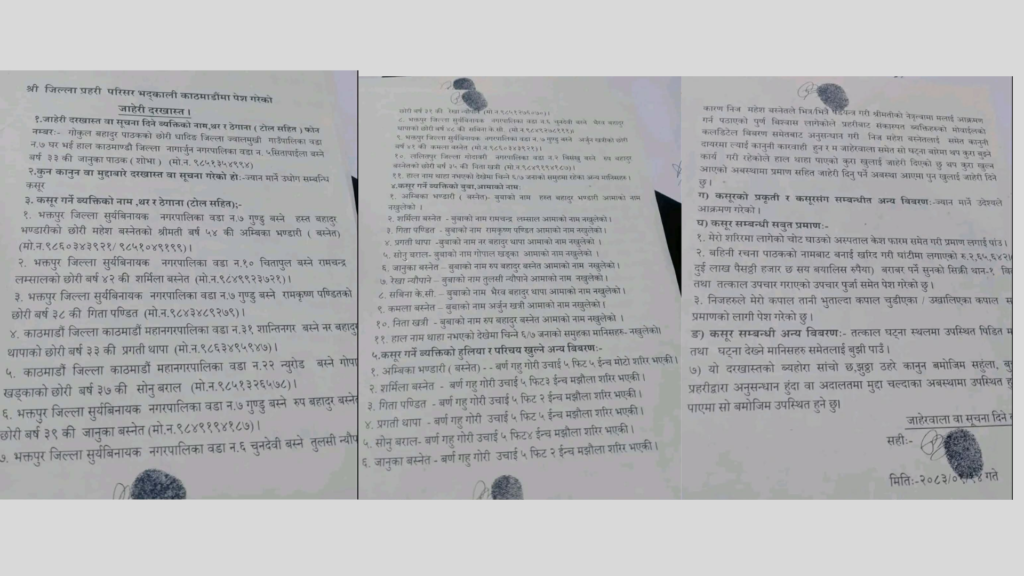 श्री जिल्ला प्रहरी परिसर भद्रकाली काठमाडौंमा पेश गरेको
जाहेरी दरखास्त ।
१.जाहेरी दरखास्त वा सूचना दिने ब्यक्तिको नाम,थर र ठेगाना ( टोल सहित ) फोन
नम्बरः- गोकुल बहादुर पाठकको छोरी धादिङ जिल्ला ज्वालामुखी गाउँपालिका वडा
न.७ घर भई हाल काठमाण्डौ जिल्ला नागार्जुन नगरपालिका वडा न. ५सितापाईला बस्ने
बर्ष ३३ की जानुका पाठक ( शोभा ) (मो.न.९८५१२३५४९९४)
२.कुन कानुन वा मुद्दाबारे दरखास्त वा सूचना गरेको होः-ज्यान मार्ने उद्योग सम्बन्धि
कसूर
३. कसूर गर्ने ब्यक्तिको नाम ,थर र ठेगाना (टोल सहित):-
१. भक्तपुर जिल्ला सुर्यबिनायक नगरपालिका वडा न.७ गुण्डु बस्ने हस्त बहादुर
भण्डारीको छोरी महेश बस्नेतको श्रीमती बर्ष ५४ की अम्बिका भण्डारी ( बस्नेत)
(मो.न.९८६०३४३९२१/ ९८५१०४९९९९)।
२. भक्तपुर जिल्ला सुर्यबिनायक नगरपालिका वडा न.१० चितापुल बस्ने रामचन्द्र
लम्सालको छोरी बर्ष ४२ की शर्मिला बस्नेत (मो.न.९८४९९२३७२१)।
३. भक्तपुर जिल्ला सुर्यबिनायक नगरपालिका वडा न.७ गुण्डु बस्ने रामकृष्ण पण्डितको
छोरी बर्ष ३८ की गिता पण्डित (मो.न.९८४३४८९२७९)।
४. काठमाडौं जिल्ला काठमाडौं महानगरपालिका वडा न.३१ शान्तिनगर बस्ने नर बहादुर
थापाको छोरी बर्ष ३३ की प्रगती थापा (मो.न.९८६३४९५९४७)।
५. काठमाडौं जिल्ला काठमाडौं महानगरपालिका वडा न.२२ न्युरोड बस्ने गोपा
खड्काको छोरी बर्ष ३७ की सोनु बराल (मो.न.९८५१३२६५७८)।
६. भक्तपुर जिल्ला सुर्यबिनायक नगरपालिका वडा न.७ गुण्डु बस्ने रुप बहादुर बस्नेत
छोरी बर्ष ३९ की जानुका बस्नेत (मो.न.९८४९९१४१८७)।
७. भक्तपुर जिल्ला सुर्यबिनायक नगरपालिका वडा न.६ चुनदेवी बस्ने तुलसी न्यौप
छोरी बर्ष ३९ की रेखा
८. भक्तपुर जिल्ला सुर्यबिनायक नगरपालिका वडा न.६ चुनदेवी बस्ने भैरव बहादुर
थापाको छोरी बर्ष ४४ की सबिना के.सी.
९. भक्तपुर जिल्ला सुर्यबिनायक नगरपालिका वडा न.७ गुण्डु बस्ने अर्जुन खत्रीको
छोरी बर्ष ४२ की कमला बस्नेत
१०. ललितपुर जिल्ला गोदावरी नगरपालिका वडा न.२ बस्ने रुप बहादुर
बस्नेतको छोरी बर्ष ३५ की निता खत्री
११. हाल नाम थाहा नभएको देखेमा चिन्ने ६/७ जनाको समुहका अन्य मानिसहरु ।
४.कसूर गर्ने ब्यक्तिको बुबा,आमाको नामः
१. अम्बिका भण्डारी ( बस्नेत)- बुबाको नाम हस्त बहादुर भण्डारी आमाको नाम
नखुलेको ।
२. शर्मिला बस्नेत - बुबाको नाम रामचन्द्र लम्साल आमाको नाम नखुलेको।
३. गिता पण्डित - बुबाको नाम रामकृष्ण पण्डित आमाको नाम नखुलेको ।
४. प्रगती थापा - बुबाको नाम नर बहादुर थापा आमाको नाम नखुलेको ।
५. सोनु बराल- बुबाको नाम गोपाल खड्का आमाको नाम नखुलेको ।
६. जानुका बस्नेत - बुबाको नाम रुप बहादुर बस्नेत आमाको नाम नखुलेको ।
७. रेखा न्यौपाने - बुबाको नाम तुलसी न्यौपाने आमाको नाम नखुलेको ।
८. सबिना के.सी. - बुबाको नाम भैरव बहादुर थापा आमाको नाम नखुलेको ।
९. कमला बस्नेत - बुबाको नाम अर्जुन खत्री आमाको नाम नखुलेको ।
१०. निता खत्री - बुबाको नाम रुप बहादुर बस्नेत आमाको नाम नखुलेको ।
११. हाल नाम थाहा नभएको देखेमा चिन्ने ६/७ जनाको समुहका मानिसहरु- नखुलेको।
५.कसूर गर्ने ब्यक्तिको हुलिया र परिचय खुल्ने अन्य बिवरणः-
१. अम्बिका भण्डारी ( बस्नेत) - - बर्ण गहु गोरी उचाई ५ फिट २ ईन्च मोटो शरिर भएकी।
२. शर्मिला बस्नेत - बर्ण गहु गोरी उचाई ५ फिट३ ईन्च मझौला शरिर भएकी।
३. गिता पण्डित - बर्ण गहु गोरी उचाई ५ फिट २ ईन्च मझौला शरिर भएकी।
४. प्रगती थापा - बर्ण गहु गोरी उचाई ५ फिट ५ ईन्च मझौला शरिर भएकी।
५. सोनु बराल- बर्ण गहु गोरी उचाई ५ फिट४ ईन्च मझौला शरिर भएकी।
६. जानुका बस्नेत - बर्ण गहु गोरी उचाई ५ फिट २ ईन्च मझौला शरिर भएकी ।
कारण निज महेश बस्नेतले भित्र/भित्रै श्रीमतीको नेतृत्वमा मलाई आक्रमण
गर्न पठाएको पुर्ण बिश्वास लागेकोले प्रहरीबाट शंकास्पद ब्यक्तिहरुको मोबाईलको
कलडिटेल बिबरण समेतबाट अनुसन्धान गरी निज महेश बस्नेतलाई समेत कानुनी
दायरमा ल्याई कानुनी कारवाही हुन र म जाहेरवाला समेत सो घट्ना बारेमा थप कुरा बुझ्ने
कार्य गरी रहेकोले हाल थाहा पाएको कुरा खुलाई जाहेरी दिएको छु थप कुरा खुल्न
आएको अवस्थामा प्रमाण सहित जाहेरी दिनु पर्ने अवस्था आएमा पुन खुलाई जाहेरी दिने
छु।
ग) कसूरको प्रकृती र कसूरसंग सम्बन्धीत अन्य बिबरणः-ज्यान मार्ने उद्देश्यले
आक्रमण गरेको।
घ) कसूर सम्बन्धी सबुत प्रमाणः-
१. मेरो शरिरमा लागेको चोट घाउको अस्पताल केश फारम समेत गरी प्रमाण लगाई पाउँ।
२. बहिनी रचना पाठकको नामबाट बनाई खरिद गरी घाँटीमा लगाएको रु.२,६५,६४२
दुई लाख पैसट्ठी हजार छ सय बयालिस रुपैया) बराबर पर्ने सुनको सिक्री थान-१
तथा तत्काल उपचार गराएको उपचार पुर्जा समेत पेश गरेको छु ।
३. निजहरुले मेरो कपाल तानी भुताल्दा कपाल चुडीएका / उखालिएका कपाल
प्रमाणको लागी पेश गरेको छु।
ङ) कसूर सम्बन्धी अन्य बिबरणः- तत्काल घट्ना स्थलमा उपस्थित पिडित
तथा घट्ना देख्ने मानिसहरु समेतलाई बुझी पाउँ।
७) यो दरखास्तको ब्यहोरा साँचो छ,झुठ्ठा ठहरे कानुन बमोजिम सहुंला, बु
प्रहरीद्वारा अनुसन्धान हुंदा वा अदालतमा मुद्दा चल्दाका अवस्थामा उपस्थित हु
पाएमा सो बमोजिम उपस्थित हुने छु।
जाहेरवाला वा सूचना दिने
सहीः-
मितिः-२०८३/०१/१४ गते